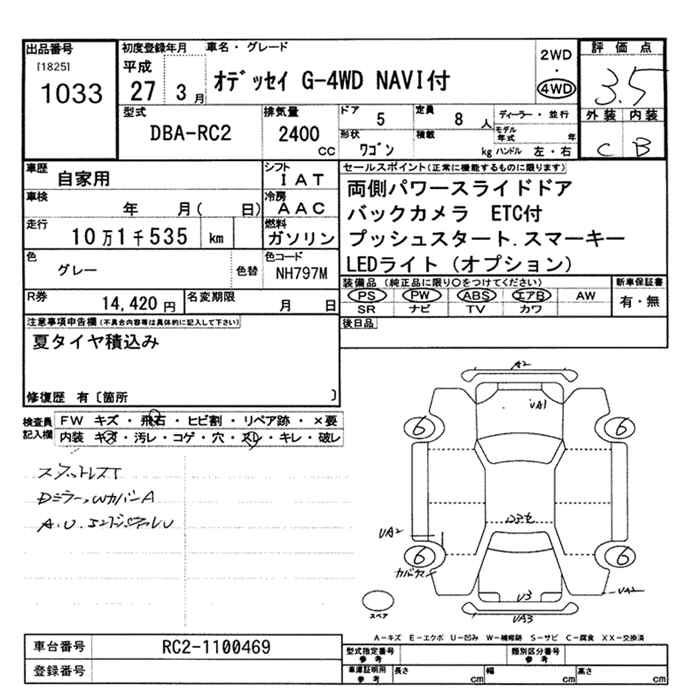 出品番号
[1825]
1033
初度登録年月
車名・グレード
平成
27 3月
オデッセイ G-4WD NAVI付
2WD
・
4WD
評価点
3.5
外装 内装
C B
型式
DBA-RC2
排気量
2400
cc
ドア
5
定員
8人
ディーラー・並行
形状
ワゴン
積載
kg
モデル年式 年
ハンドル 左・右
車歴
自家用
シフト
IAT
車検
年 月( 日)
冷房
AAC
走行
10万1千535 km
燃料
ガソリン
色
グレー
色替
色コード
NH797M
R券
14,420円
名変期限
月 日
セールスポイント(正常に機能するものに限ります)
両側パワースライドドア
バックカメラ ETC付
プッシュスタート.スマーキー
LEDライト(オプション)
装備品 (純正品に限り○をつけてください)
PS PW ABS エアB AW
SR ナビ TV カワ
新車保証書
有・無
後日品
注意事項申告欄(不具合内容等は具体的に記入して下さい)
夏タイヤ積込み
修復歴 有〔箇所 〕
検査員
記入欄
FW キズ・飛石・ヒビ割・リペア跡・×要
内装 キズ・汚レ・コゲ・穴・スレ・キレ・破レ
A2
UA1
6 6
UA2
6 6
UA2
U3
UA3
スペア
A-キズ E-エクボ U-凹み W-補修跡 S-サビ C-腐食 XX-交換済
車台番号
RC2-1100469
登録番号
型式指定番号
参考
類別区分番号
参考
車庫証明用
参考
長さ cm
幅 cm
高さ cm